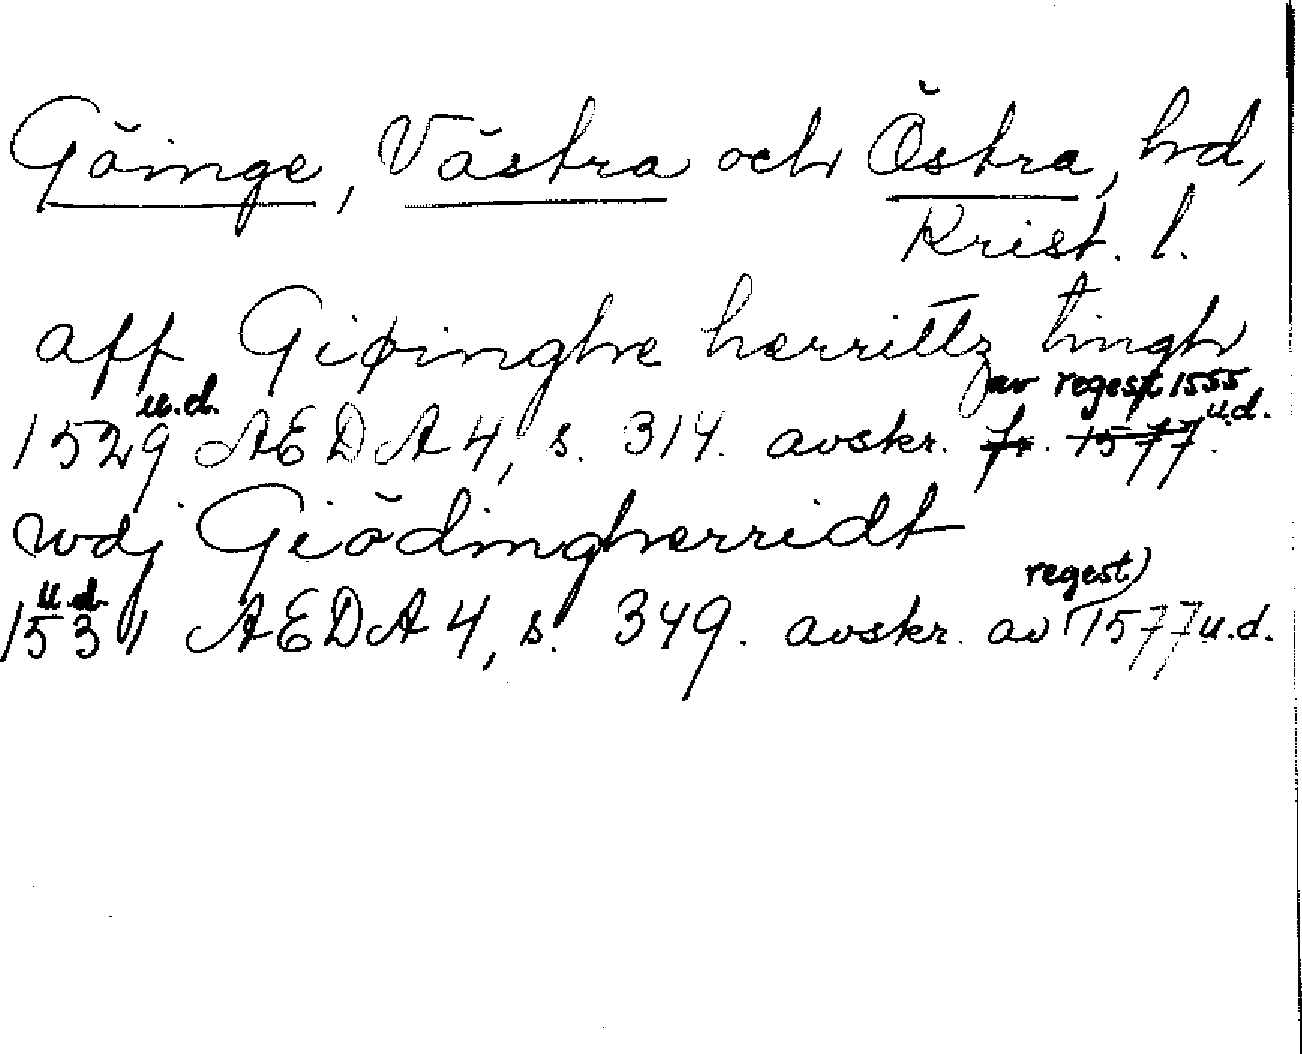 Göinge, Västra och Östra, hd,
Krist. l.
aff Giøinghe herrittz tingh
1529 u.d. AEDA 4, s. 314. avskr. av regest 1555 u.d.
wdj Giödingherridt
1531 u.d. AEDA 4, s. 349. avskr. av (regest) 1577 u.d.